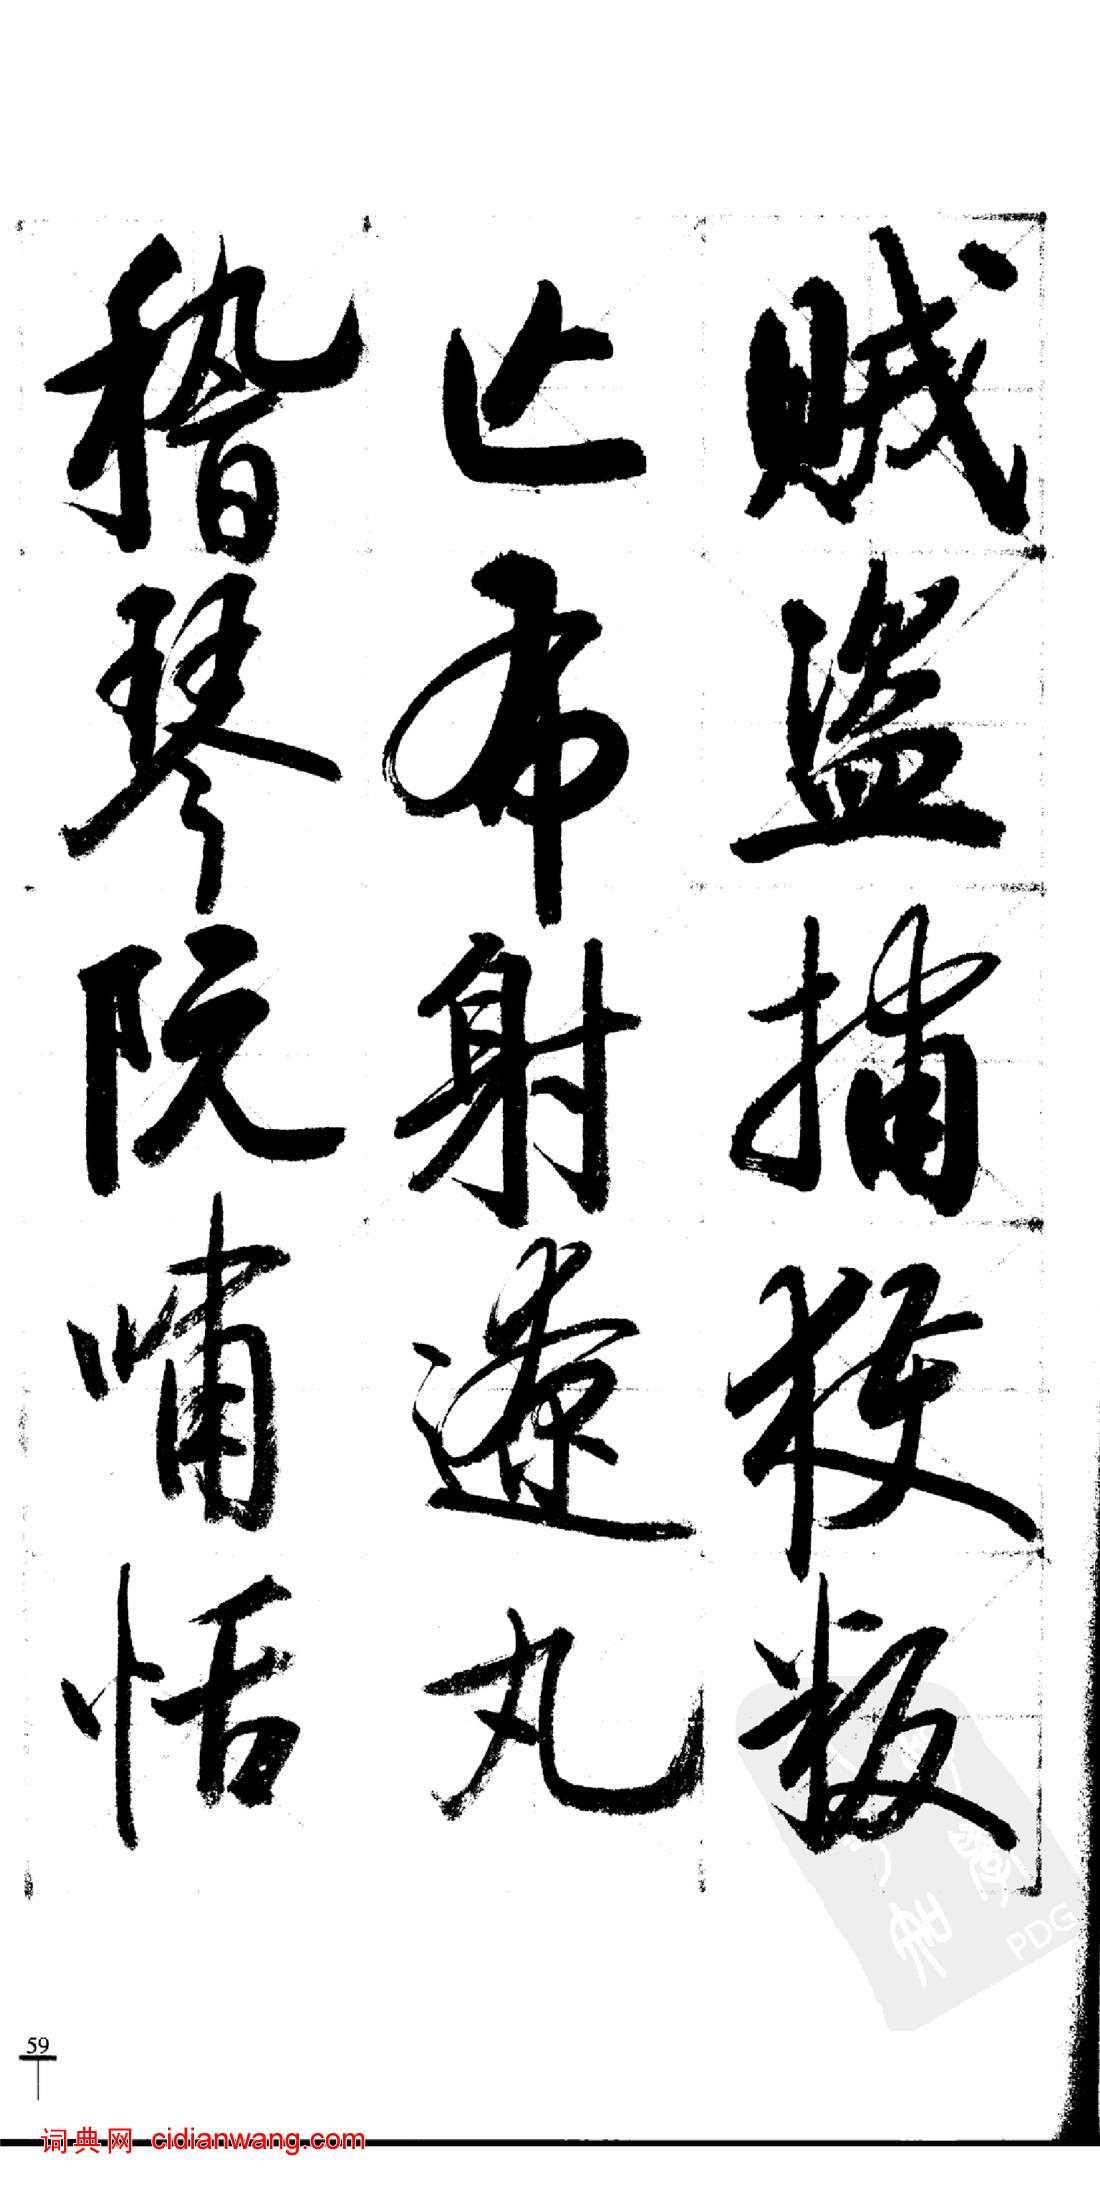 賊盜捕獲叛
亡布射遼丸
嵇琴阮嘯恬
59
词典网 cidianwang.com
PDG